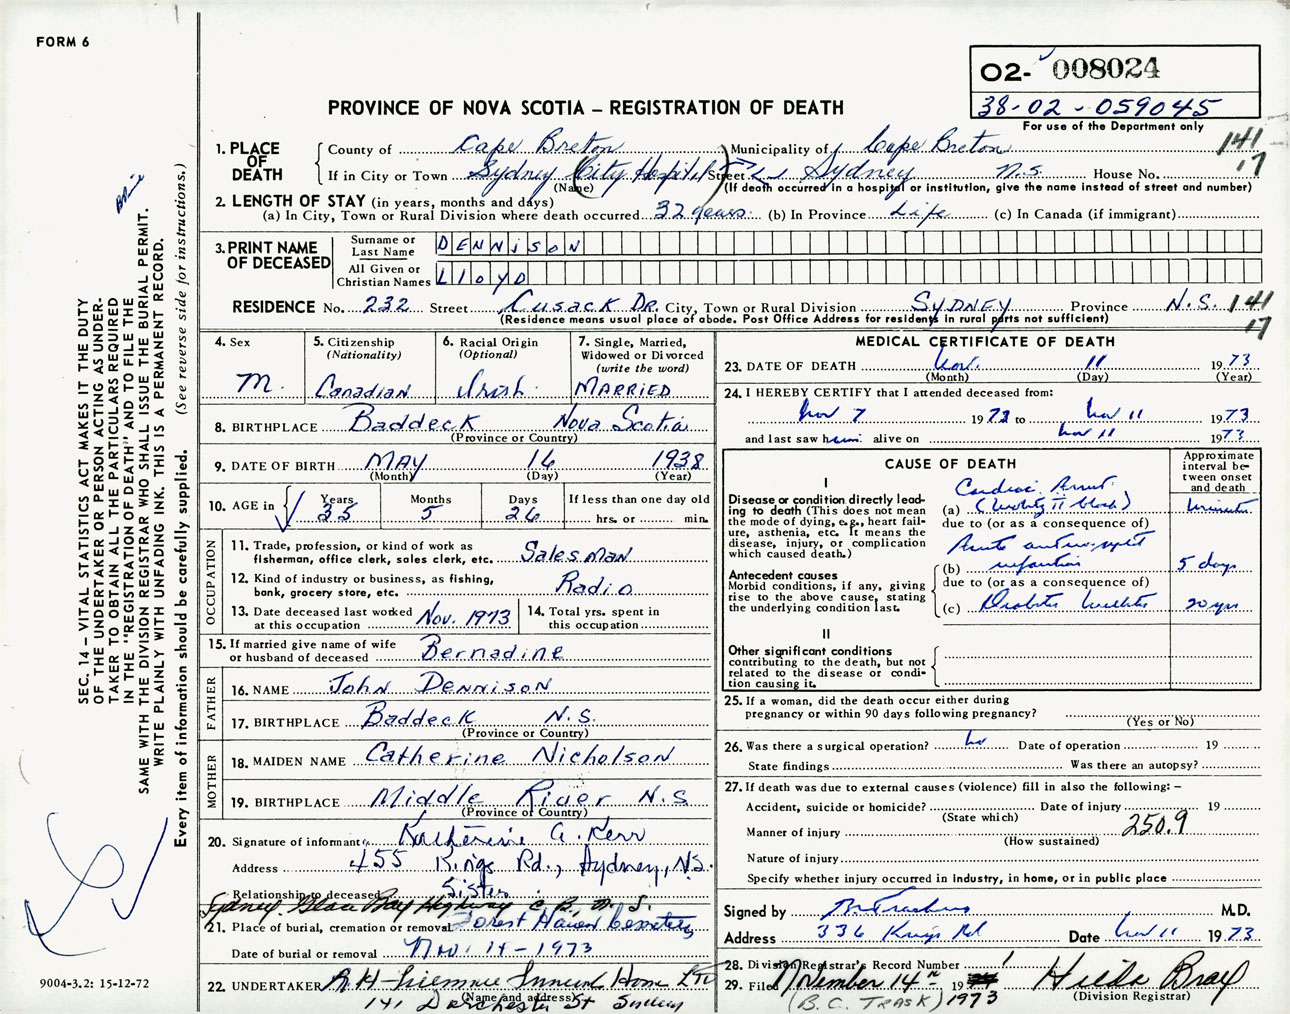 FORM 6
02- 008024
38-02-059045
For use of the Department only
PROVINCE OF NOVA SCOTIA – REGISTRATION OF DEATH
1. PLACE OF DEATH
County of Cape Breton Municipality of Cape Breton 141
If in City or Town Sydney City Hospital Street Sydney N.S. House No. 17
(Name) (If death occurred in a hospital or institution, give the name instead of street and number)
2. LENGTH OF STAY (in years, months and days)
(a) In City, Town or Rural Division where death occurred 32 years (b) In Province Life (c) In Canada (if immigrant)
3. PRINT NAME OF DECEASED
Surname or Last Name DENNISON
All Given or Christian Names LLOYD
RESIDENCE No. 232 Street Cusack Dr. City, Town or Rural Division SYDNEY Province N.S. 141
(Residence means usual place of abode. Post Office Address for residents in rural parts not sufficient) 17
4. Sex M.
5. Citizenship (Nationality) Canadian
6. Racial Origin (Optional) Irish
7. Single, Married, Widowed or Divorced (write the word) MARRIED
8. BIRTHPLACE Baddeck Nova Scotia
(Province or Country)
9. DATE OF BIRTH MAY 16 1938
(Month) (Day) (Year)
10. AGE in Years 35 Months 5 Days 26 If less than one day old
hrs. or min.
OCCUPATION
11. Trade, profession, or kind of work as fisherman, office clerk, sales clerk, etc. Salesman
12. Kind of industry or business, as fishing, bank, grocery store, etc. Radio
13. Date deceased last worked at this occupation Nov. 1973
14. Total yrs. spent in this occupation
15. If married give name of wife or husband of deceased Bernadine
FATHER
16. NAME John Dennison
17. BIRTHPLACE Baddeck N.S.
(Province or Country)
MOTHER
18. MAIDEN NAME Catherine Nicholson
19. BIRTHPLACE Middle River N.S
(Province or Country)
20. Signature of informant Katherine A. Kerr
Address 455 Kings Rd., Sydney, N.S.
Relationship to deceased Sister
Sydney Glace Bay Highway C.B. N.S.
21. Place of burial, cremation or removal Forest Haven Cemetery
Date of burial or removal Nov. 14 - 1973
22. UNDERTAKER Home LTD
(Name and address)
141 Dorchester St Sydney
MEDICAL CERTIFICATE OF DEATH
23. DATE OF DEATH Nov. 11 1973
(Month) (Day) (Year)
24. I HEREBY CERTIFY that I attended deceased from:
Nov 7 1973 to Nov 11 1973
and last saw him alive on Nov 11 1973
CAUSE OF DEATH
Approximate interval between onset and death
I
Disease or condition directly leading to death (This does not mean the mode of dying, e.g., heart failure, asthenia, etc. It means the disease, injury, or complication which caused death.)
Cardiac Arrest
(a) (Mobitz II block) minutes
due to (or as a consequence of)
Acute anteroseptal
(b) infarction 5 days
Antecedent causes
Morbid conditions, if any, giving rise to the above cause, stating the underlying condition last.
due to (or as a consequence of)
(c) Diabetes Mellitus 20 yrs
II
Other significant conditions contributing to the death, but not related to the disease or condition causing it.
25. If a woman, did the death occur either during pregnancy or within 90 days following pregnancy?
(Yes or No)
26. Was there a surgical operation? No Date of operation 19
State findings Was there an autopsy?
27. If death was due to external causes (violence) fill in also the following: –
Accident, suicide or homicide? Date of injury 19
(State which)
Manner of injury 250.9
(How sustained)
Nature of injury
Specify whether injury occurred in industry, in home, or in public place
Signed by M.D.
Address 336 Kings Rd Date Nov 11 1973
28. Division Registrar's Record Number 1
29. Filed November 14th 19 Hilda Bray
(B.C. TRASK) 1973 (Division Registrar)
SEC. 14 – VITAL STATISTICS ACT MAKES IT THE DUTY
OF THE UNDERTAKER OR PERSON ACTING AS UNDER-
TAKER TO OBTAIN ALL THE PARTICULARS REQUIRED
IN THE "REGISTRATION OF DEATH" AND TO FILE THE
SAME WITH THE DIVISION REGISTRAR WHO SHALL ISSUE THE BURIAL PERMIT.
WRITE PLAINLY WITH UNFADING INK. THIS IS A PERMANENT RECORD.
Every item of information should be carefully supplied. (See reverse side for instructions.)
9004-3.2: 15-12-72